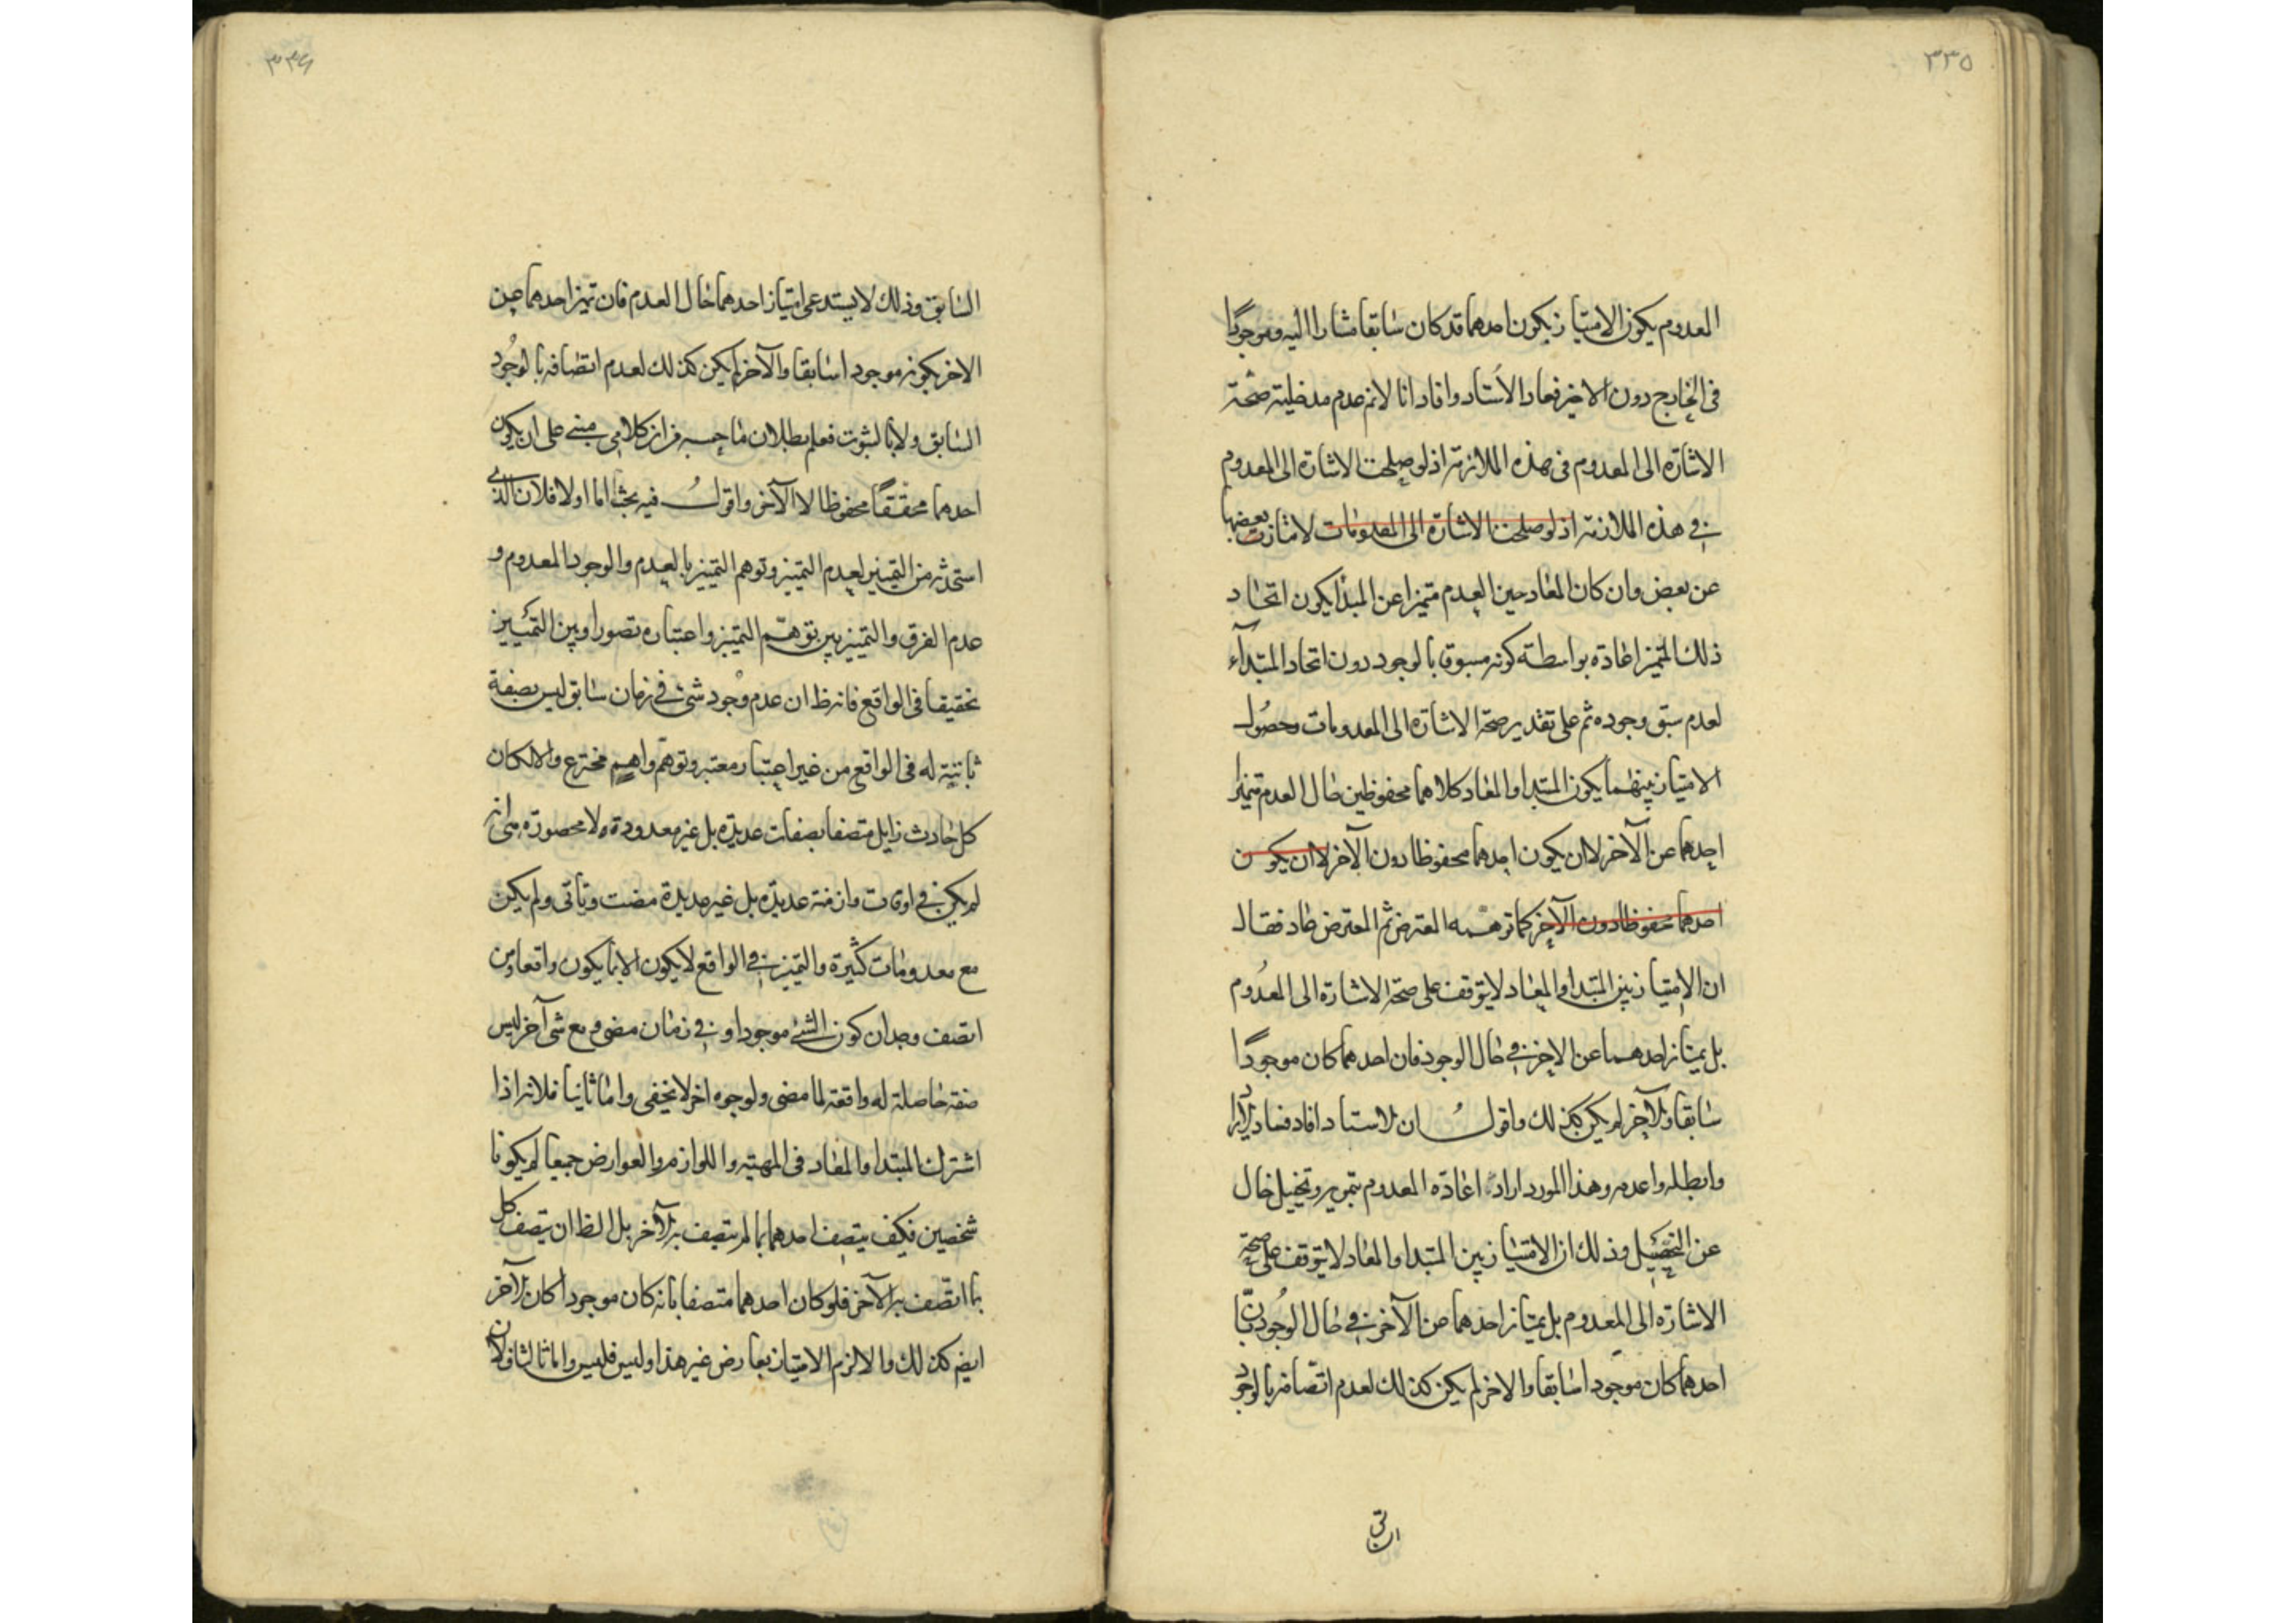 ٣٣٥
المعدوم يكون الامتياز بكون احدهما قد كان سابقا مشارا اليه وموجودا
فى الخارج دون الاخير فعاد الاستاد وافاد انا لانم عدم مدخلية صحة
الاشارة الى المعدوم فى هذه الملازمة اذ لو صلحت الاشارة الى المعدوم
فى هذه الملازمة اذ لو صلحت الاشارة الى المعدومات لامتازت بعضها
عن بعض وان كان المعاد حين العدم متميزا عن المبدا يكون اتحاد
ذلك المتميز اعادة بواسطة كونه مسبوقا بالوجود دون اتحاد المبتداء
لعدم سبق وجوده ثم على تقدير صحة الاشارة الى المعدومات وحصول
الامتياز بينهما يكون المبتدا والمعاد كلاهما محفوظين حال العدم متميزا
احدهما عن الآخر لا ان يكون احدهما محفوظا دون الآخر لا ان يكون
احدهما محفوظا دون الآخر كما توهمه المعترض ثم المعترض عاد فقال
ان الامتياز بين المبتدا والمعاد لا يتوقف على صحة الاشارة الى المعدوم
بل يمتاز احدهما عن الاخر فى حال الوجود فان احدهما كان موجودا
سابقا والآخر لم يكن كذلك واقول ان الاستاد افاد فعاد
وابطله واعدمه وهذا المورد اراد اعادة المعدوم بتمويه وتخييل خال
عن التحصيل وذلك ان الامتياز بين المبتدا والمعاد لا يتوقف على صحة
الاشارة الى المعدوم بل يمتاز احدهما من الآخر فى حال الوجود بان
احدهما كان موجودا سابقا والاخر لم يكن كذلك لعدم اتصافه بالوجود
٣٣٦
السابق وذلك لا يستدعى امتياز احدهما حال العدم فان تميز احدهما عن
الاخر بكونه موجودا سابقا والآخر لم يكن كذلك لعدم اتصافه بالوجود
السابق ولا بالثبوت فعلم بطلان ما حسبه من ان كلامى مبنى على ان يكون
احدهما محققا محفوظا لا الآخر واقول فيه بحث اما اولا فلان الذى
استحدثه من التميزين لعدم التمييز وتوهم التمييز بالعدم والوجود المعدوم و
عدم الفرق والتمييز بين توهم التميز واعتباره تصورا وبين التمييز
تحقيقا فى الواقع فانه ظ ان عدم وجود شئ فى زمان سابق ليس بصفة
ثابتة له فى الواقع من غير اعتبار معتبر وتوهم واهم مخترع والا لكان
كل حادث زايل متصفا بصفات عديدة بل غير معدودة ولا محصورة هى انه
لم يكن فى اوقات وازمنة عديدة بل غير عديدة مضت وتاتى ولم يكن
مع معدومات كثيرة والتميز فى الواقع لا يكون الا بما يكون واقعا ومن
انصف وجد ان كون الشئ موجودا وفى زمان مضى ومع شئ آخر ليس
صفة حاصلة له واقعة لما مضى ولوجوه اخر لا تخفى واما ثانيا فلانه اذا
اشترك المبتدا والمعاد فى المهية واللوازم والعوارض جميعا لم يكونا
شخصين فكيف يتصف احدهما بما لم يتصف به الآخر بل الظ ان يتصف كل
بما اتصف به الآخر فلو كان احدهما متصفا بانه كان موجودا كان الآخر
ايضا كذلك والا لزم الامتياز بعارض غير هذا وليس فليس واما ثالثا فلان